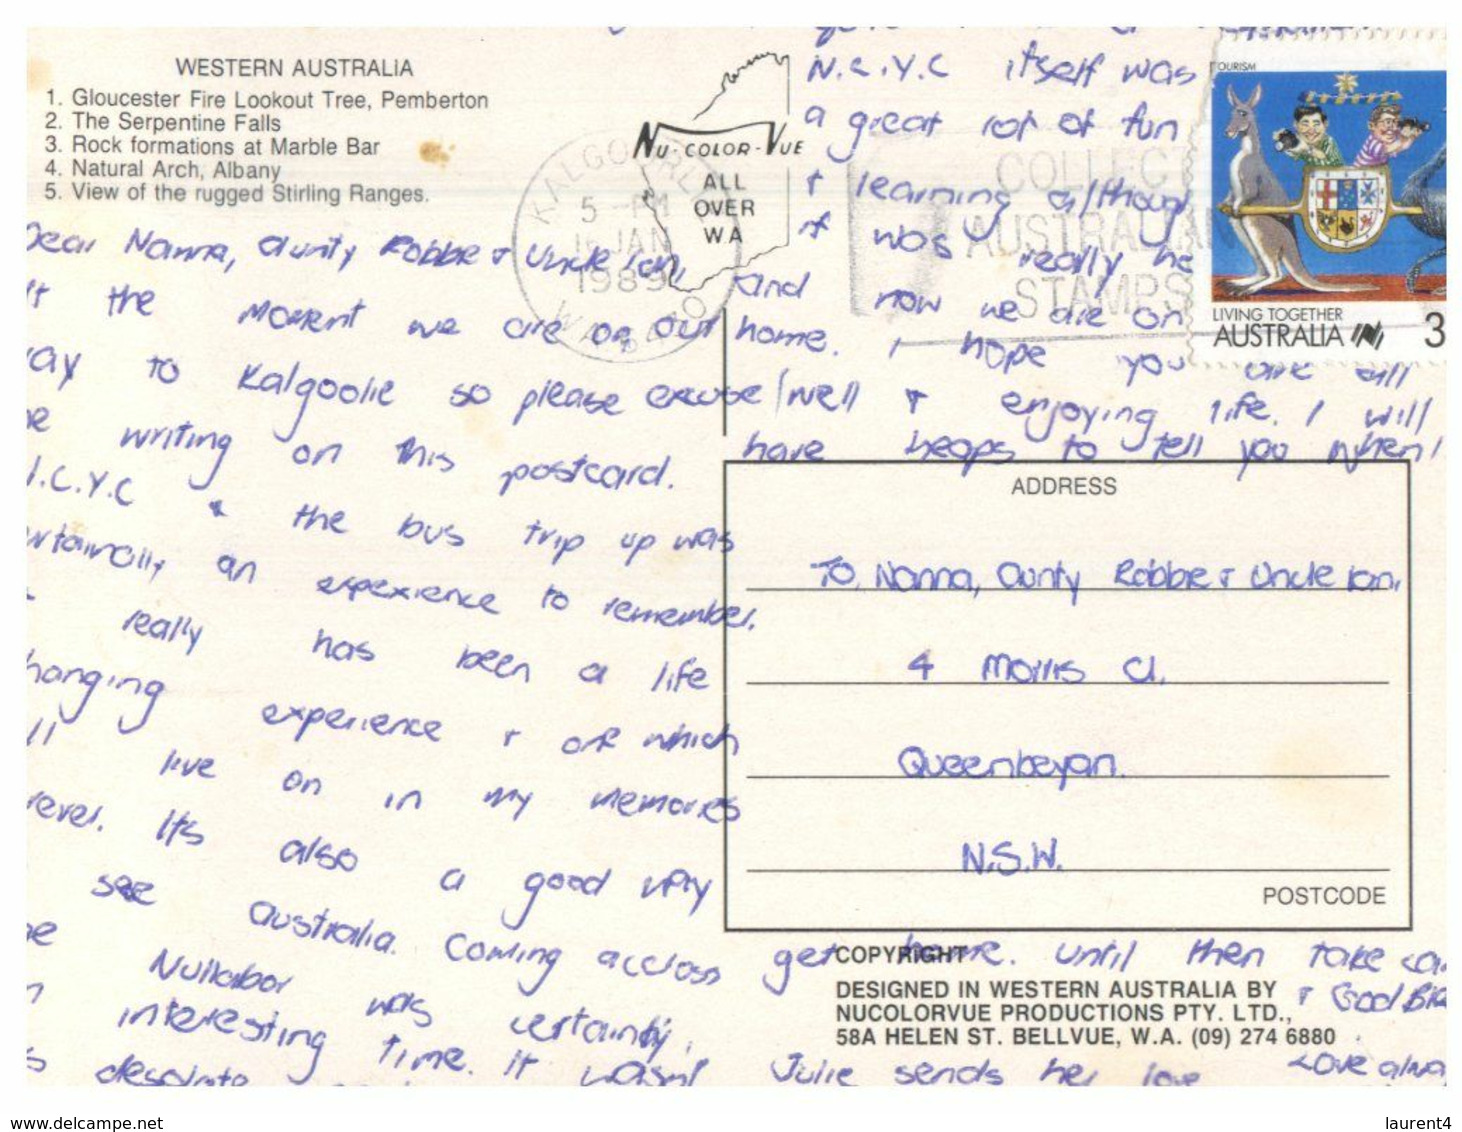 WESTERN AUSTRALIA
1. Gloucester Fire Lookout Tree, Pemberton
2. The Serpentine Falls
3. Rock formations at Marble Bar
4. Natural Arch, Albany
5. View of the rugged Stirling Ranges.
NU-COLOR-VUE
ALL
OVER
WA
KALGOORLIE
5 - PM
16 JAN
1989
WA 6430
COLLECT
AUSTRALIAN
STAMPS
TOURISM
LIVING TOGETHER
AUSTRALIA
3
Dear Nanna, Aunty Robbie & Uncle Ian,
At the moment we are on our
way to Kalgoolie so please excuse
the writing on this postcard.
N.C.Y.C & the bus trip up was
certainally an experience to remember.
really has been a life
changing experience & one which
will live on in my memories
forever. It's also a good way
see australia. Coming accross
the Nullabor was certainly
an interesting time. It wasn't
as desolate
N.C.Y.C itself was
a great lot of fun
& learning although
it was really he
and now we are on
home. I hope you are all
well & enjoying life. I will
have heaps to tell you when I
get home. Until then take ca
& God Ble
Julie sends her love
Love alwa
ADDRESS
To, Nanna, Aunty Robbie & Uncle Ian,
4 Morris Cl,
Queenbeyan.
N.S.W.
POSTCODE
COPYRIGHT
DESIGNED IN WESTERN AUSTRALIA BY
NUCOLORVUE PRODUCTIONS PTY. LTD.,
58A HELEN ST. BELLVUE, W.A. (09) 274 6880
www.delcampe.net
laurent4